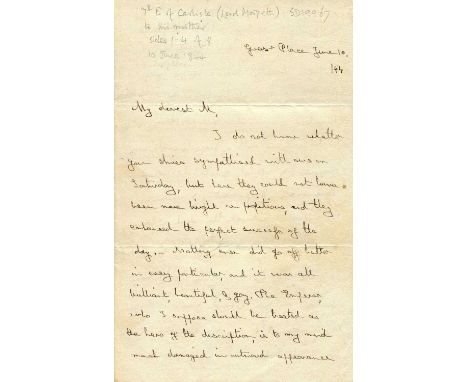 7th E of Carlisle (Lord Morpeth) SD19967
to his mother
sides 1-4 of 8
10 June 1844
Place June 10.
/44
My dearest M,
I do not know whether
your skies sympathised with ours on
Saturday, but here they could not have
been more bright or propitious, and they
enhanced the perfect success of the
day. Nothing ever did go off better
in every particular, and it was all
brilliant, beautiful, & gay. The Emperor,
who I suppose should be treated as
the hero of the description is to my mind
much damaged in outward appearance